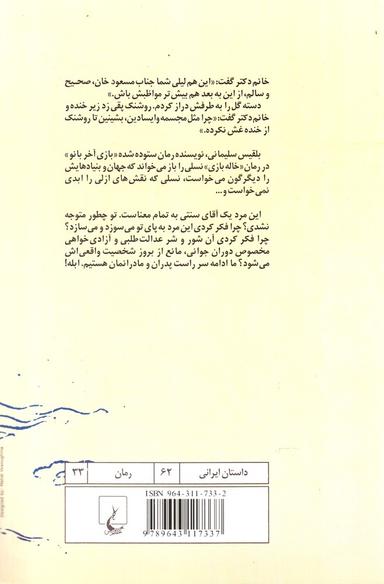 خانم دکتر گفت: «این هم لیلی شما جناب مسعود خان، صحیح
و سالم، از این به بعد هم بیش تر مواظبش باش.»
دسته گل را به طرفش دراز کردم. روشنک پقی زد زیر خنده و
خانم دکتر گفت: «چرا مثل مجسمه وایسادین، بشینین تا روشنک
از خنده غش نکرده.»
بلقیس سلیمانی، نویسنده رمان ستوده شده «بازی آخر بانو»
در رمان «خاله بازی» نسلی را باز می‌خواند که جهان و بنیادهایش
را دیگرگون می‌خواست، نسلی که نقش‌های ازلی را ابدی
نمی‌خواست و...
این مرد یک آقای سنتی به تمام معناست. تو چطور متوجه
نشدی؟ چرا فکر کردی این مرد به پای تو می‌سوزد و می‌سازد؟
چرا فکر کردی آن شور و شر عدالت‌طلبی و آزادی خواهی
مخصوص دوران جوانی، مانع از بروز شخصیت واقعی‌اش
می‌شود؟ ما ادامه سر راست پدران و مادرانمان هستیم. ابله!
داستان ایرانی ۶۲ رمان ۳۳
ISBN 964-311-733-2
9 789643 117337